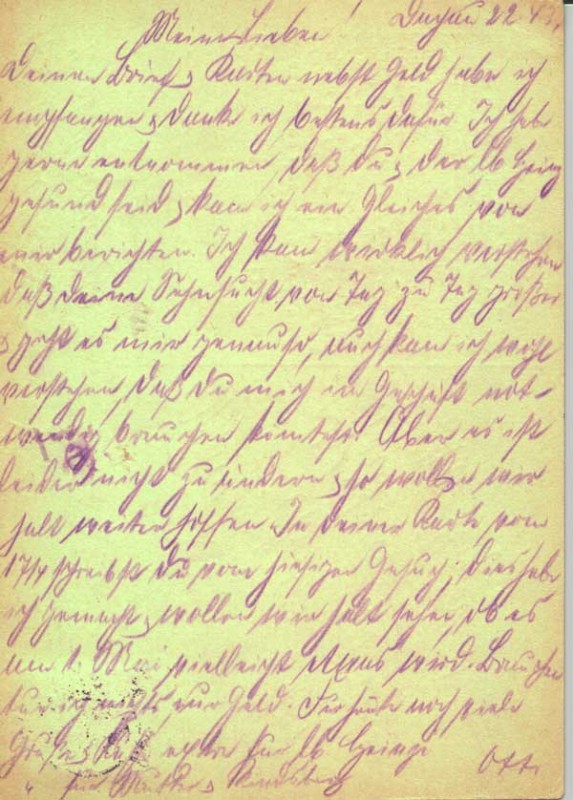 Meine Lieben! Dachau 22. 4.
Deinen Brief & Karten nebst Geld habe ich
empfangen & danke ich bestens dafür. Ich habe
gerne entnommen, daß Du & der lb Heinz
gesund seid & kan ich ein Gleiches von
mir berichten. Ich kan wirklich verstehen
daß deine Sehnsucht von Tag zu Tag größer
& geht es mir genauso, auch kan ich wohl
verstehen, daß Du mich im Geschäft not-
wendig brauchen könntest. Aber es ist
leider nicht zu ändern & so wollen wir
halt weiter hoffen. In deiner Karte vom
17/4 schreibst Du vom hiesigen Gesuch, dies habe
ich gemacht & wollen wir halt sehen, ob es
am 1. Mai vielleicht etwas wird. Brauchen
tue ich nichts, nur Geld. Für heute noch viele
Grüße & extra für lb Heinz
" für Mutter & Otto